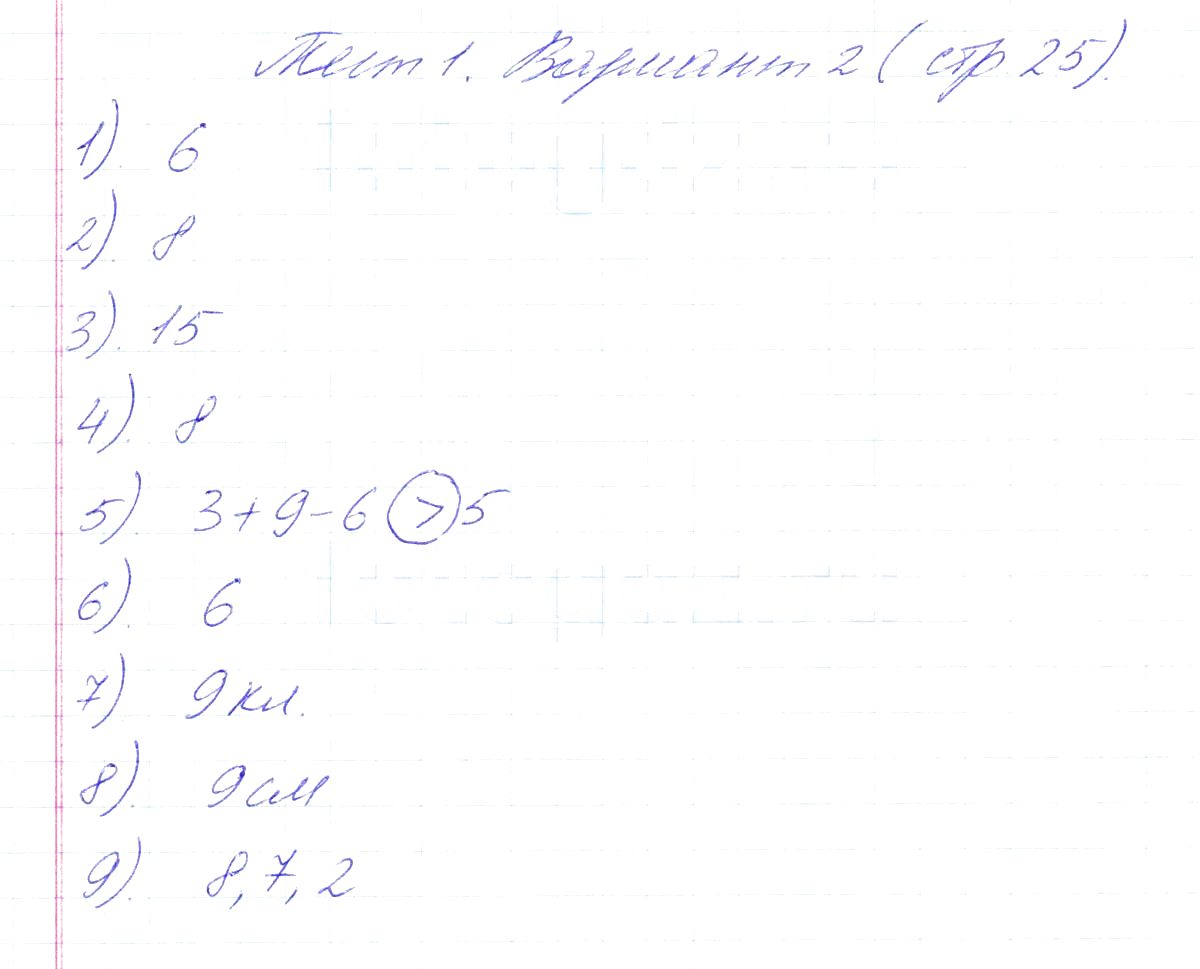 Тест 1. Вариант 2 (стр 25).
1). 6
2). 8
3). 15
4). 8
5). 3+9-6 > 5
6). 6
7) 9 кл.
8). 9 см
9). 8, 7, 2